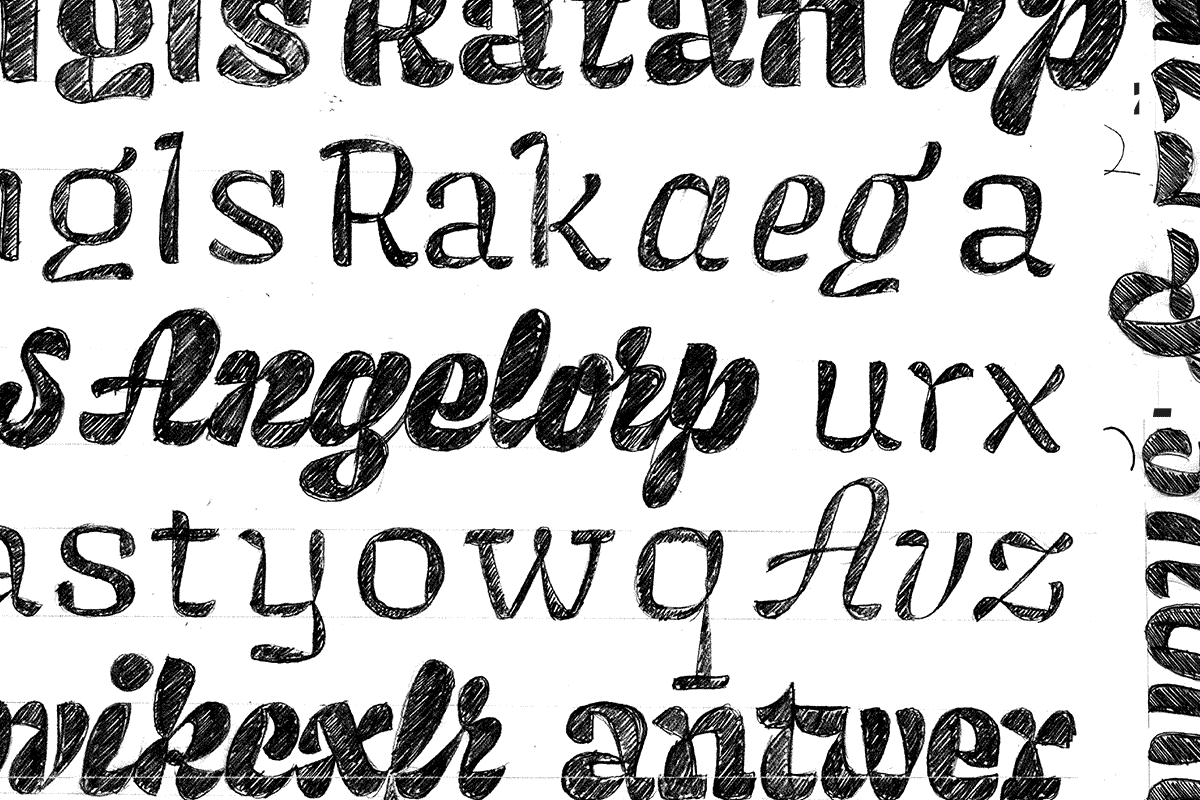 ngls Ratan ap
ngls Rak aeg a
s Angelorp urx
astyowq Avz
wikexlr antwer